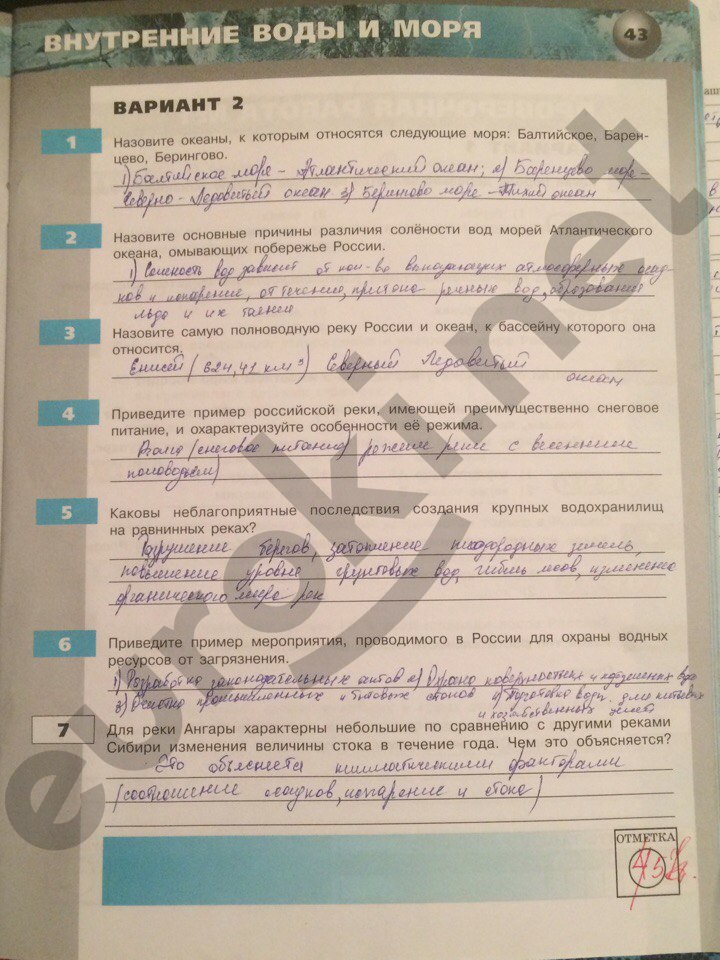 ВНУТРЕННИЕ ВОДЫ И МОРЯ
43
ВАРИАНТ 2
1
Назовите океаны, к которым относятся следующие моря: Балтийское, Барен-
цево, Берингово.
1) Балтийское море - Атлантический океан; 2) Баренцево море -
Северно - Ледовитый океан 3) Берингово море - Тихий океан
2
Назовите основные причины различия солёности вод морей Атлантического
океана, омывающих побережье России.
1) Соленость вод зависит от кол-во выпадающих атмосферных осад-
ков и испарение, от течения, притока речных вод, образования
льда и их таяния
3
Назовите самую полноводную реку России и океан, к бассейну которого она
относится.
Енисей (624,41 км³) Северный Ледовитый
океан
4
Приведите пример российской реки, имеющей преимущественно снеговое
питание, и охарактеризуйте особенности её режима.
Волга (снеговое питание) режим реки с весенним
половодьем)
5
Каковы неблагоприятные последствия создания крупных водохранилищ
на равнинных реках?
Разрушение берегов, затопление плодородных земель,
повышение уровня грунтовых вод, гибель лесов, изменение
органического мира рек
6
Приведите пример мероприятия, проводимого в России для охраны водных
ресурсов от загрязнения.
1) Разработка законодательных актов 2) Охрана поверхностных и подземных вод
3) Очистка промышленных и бытовых стоков 4) Подготовка воды для питьевых
и хозяйственных
7
Для реки Ангары характерны небольшие по сравнению с другими реками
Сибири изменения величины стока в течение года. Чем это объясняется?
Это объясняется климатическими факторами
(соотношение осадков, испарение и стока)
ОТМЕТКА
euroki.net